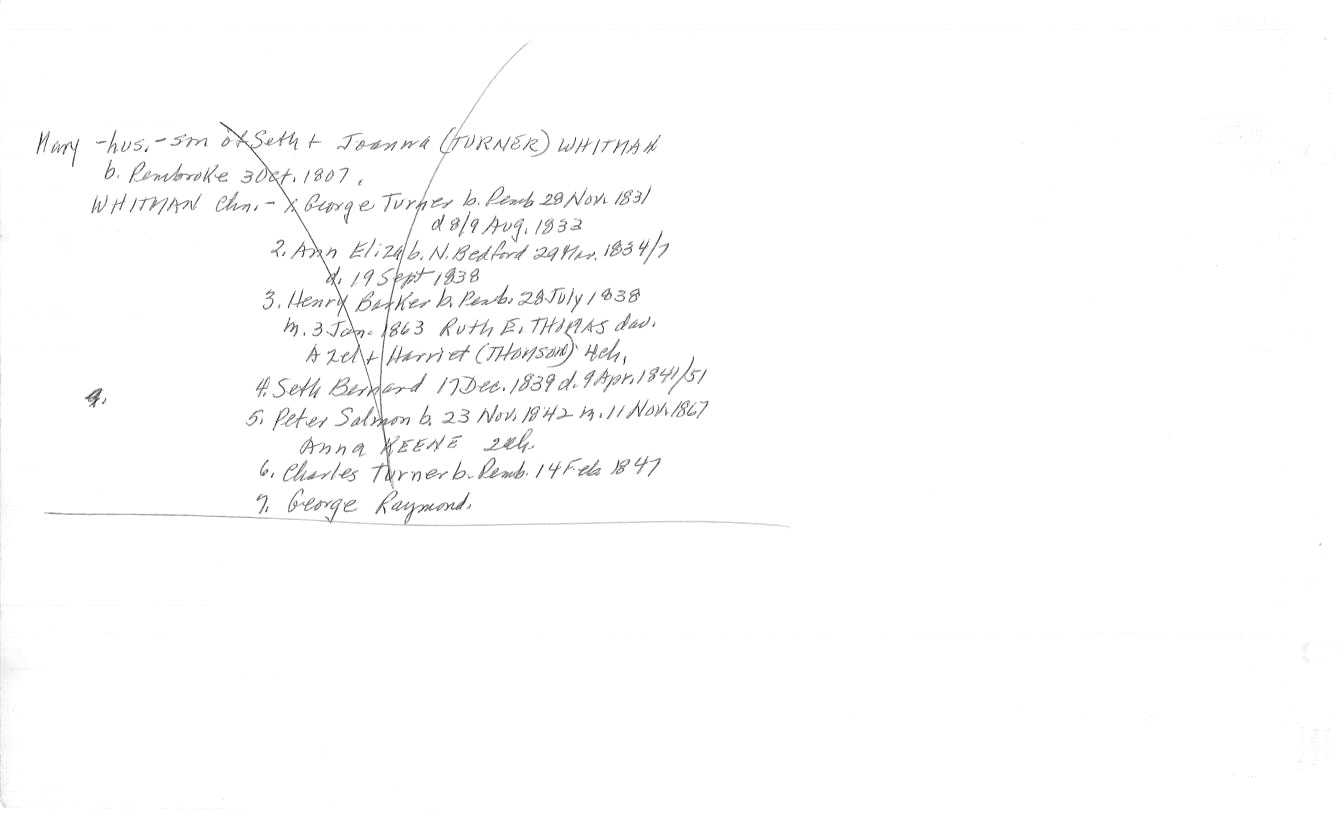 Mary - hus. - son of Seth + Joanna (TURNER) WHITMAN
b. Pembroke 3 Oct. 1807.
WHITMAN Chn. - 1. George Turner b. Pemb 28 Nov. 1831
d 8/9 Aug. 1833
2. Ann Eliza b. N. Bedford 29 Mar. 1834/7
d. 19 Sept 1838
3. Henry Barker b. Pemb. 28 July 1838
m. 3 Jan. 1863 Ruth E. THOMAS dau.
Azel + Harriet (THOMSON) 4ch.
4. Seth Bernard 17 Dec. 1839 d. 9 Apr. 1841/51
5. Peter Salmon b. 23 Nov. 1842 m. 11 Nov. 1867
Anna KEENE 2ch.
6. Charles Turner b. Pemb. 14 Feb 1847
7. George Raymond.